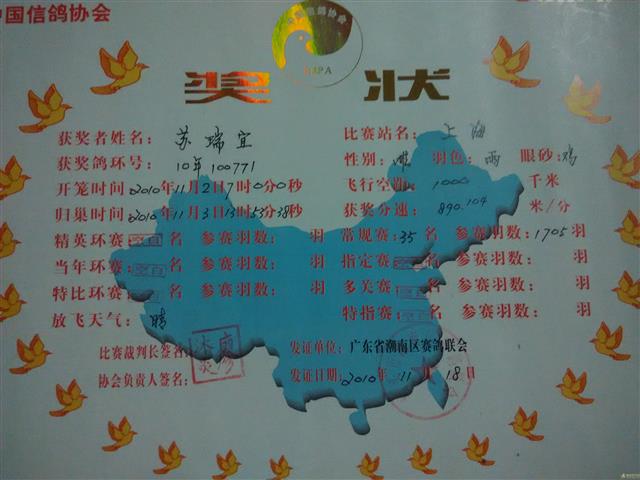 中国信鸽协会
中国信鸽协会
奖 状
获奖者姓名： 苏瑞宜 比赛站名： 上海
获奖鸽环号： 10年100771 性别： 羽色：雨 眼砂：鸡
开笼时间 2010年11月2日7时0分0秒 飞行空距 1000 千米
归巢时间 2010年11月3日13时53分38秒 获奖分速： 890.104 米/分
精英环赛：空白名 参赛羽数： 羽 常规赛：35名 参赛羽数：1705羽
当年环赛：空白名 参赛羽数： 羽 指定赛：空白名 参赛羽数： 羽
特比环赛：空白名 参赛羽数： 羽 多关赛：空白名 参赛羽数： 羽
放飞天气： 晴 特指赛：空白名 参赛羽数： 羽
比赛裁判长签名： 发证单位：广东省潮南区赛鸽联会
协会负责人签名： 发证日期：2010年11月18日